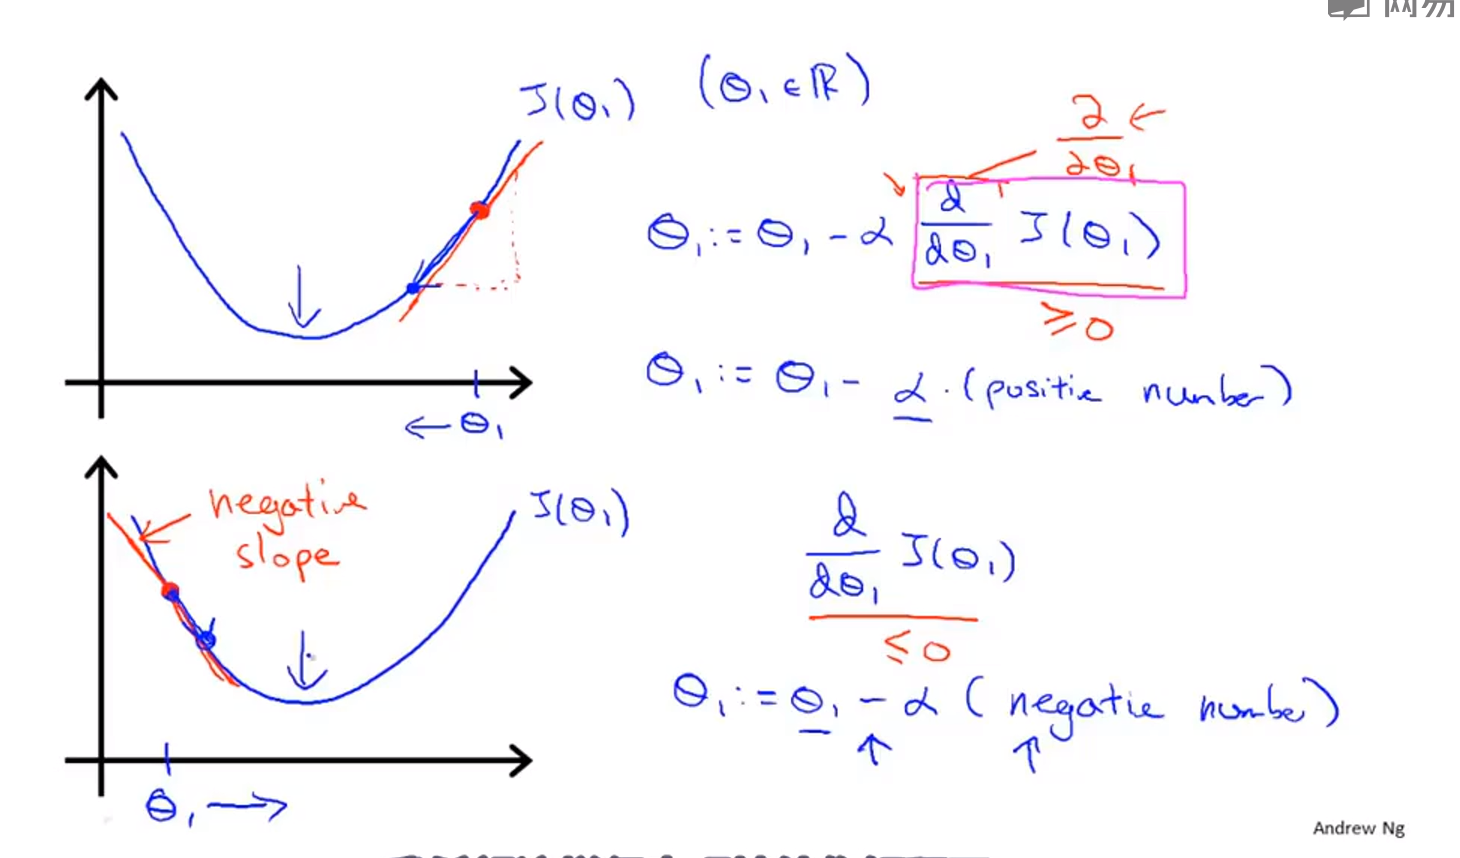 网易
J(θ₁) (θ₁ ∈ ℝ)
∂/∂θ₁ ←
θ₁ := θ₁ - α d/dθ₁ J(θ₁)
≥ 0
θ₁ := θ₁ - α · (positive number)
← θ₁
negative
slope
J(θ₁)
d/dθ₁ J(θ₁)
≤ 0
θ₁ := θ₁ - α (negative number)
θ₁ →
Andrew Ng